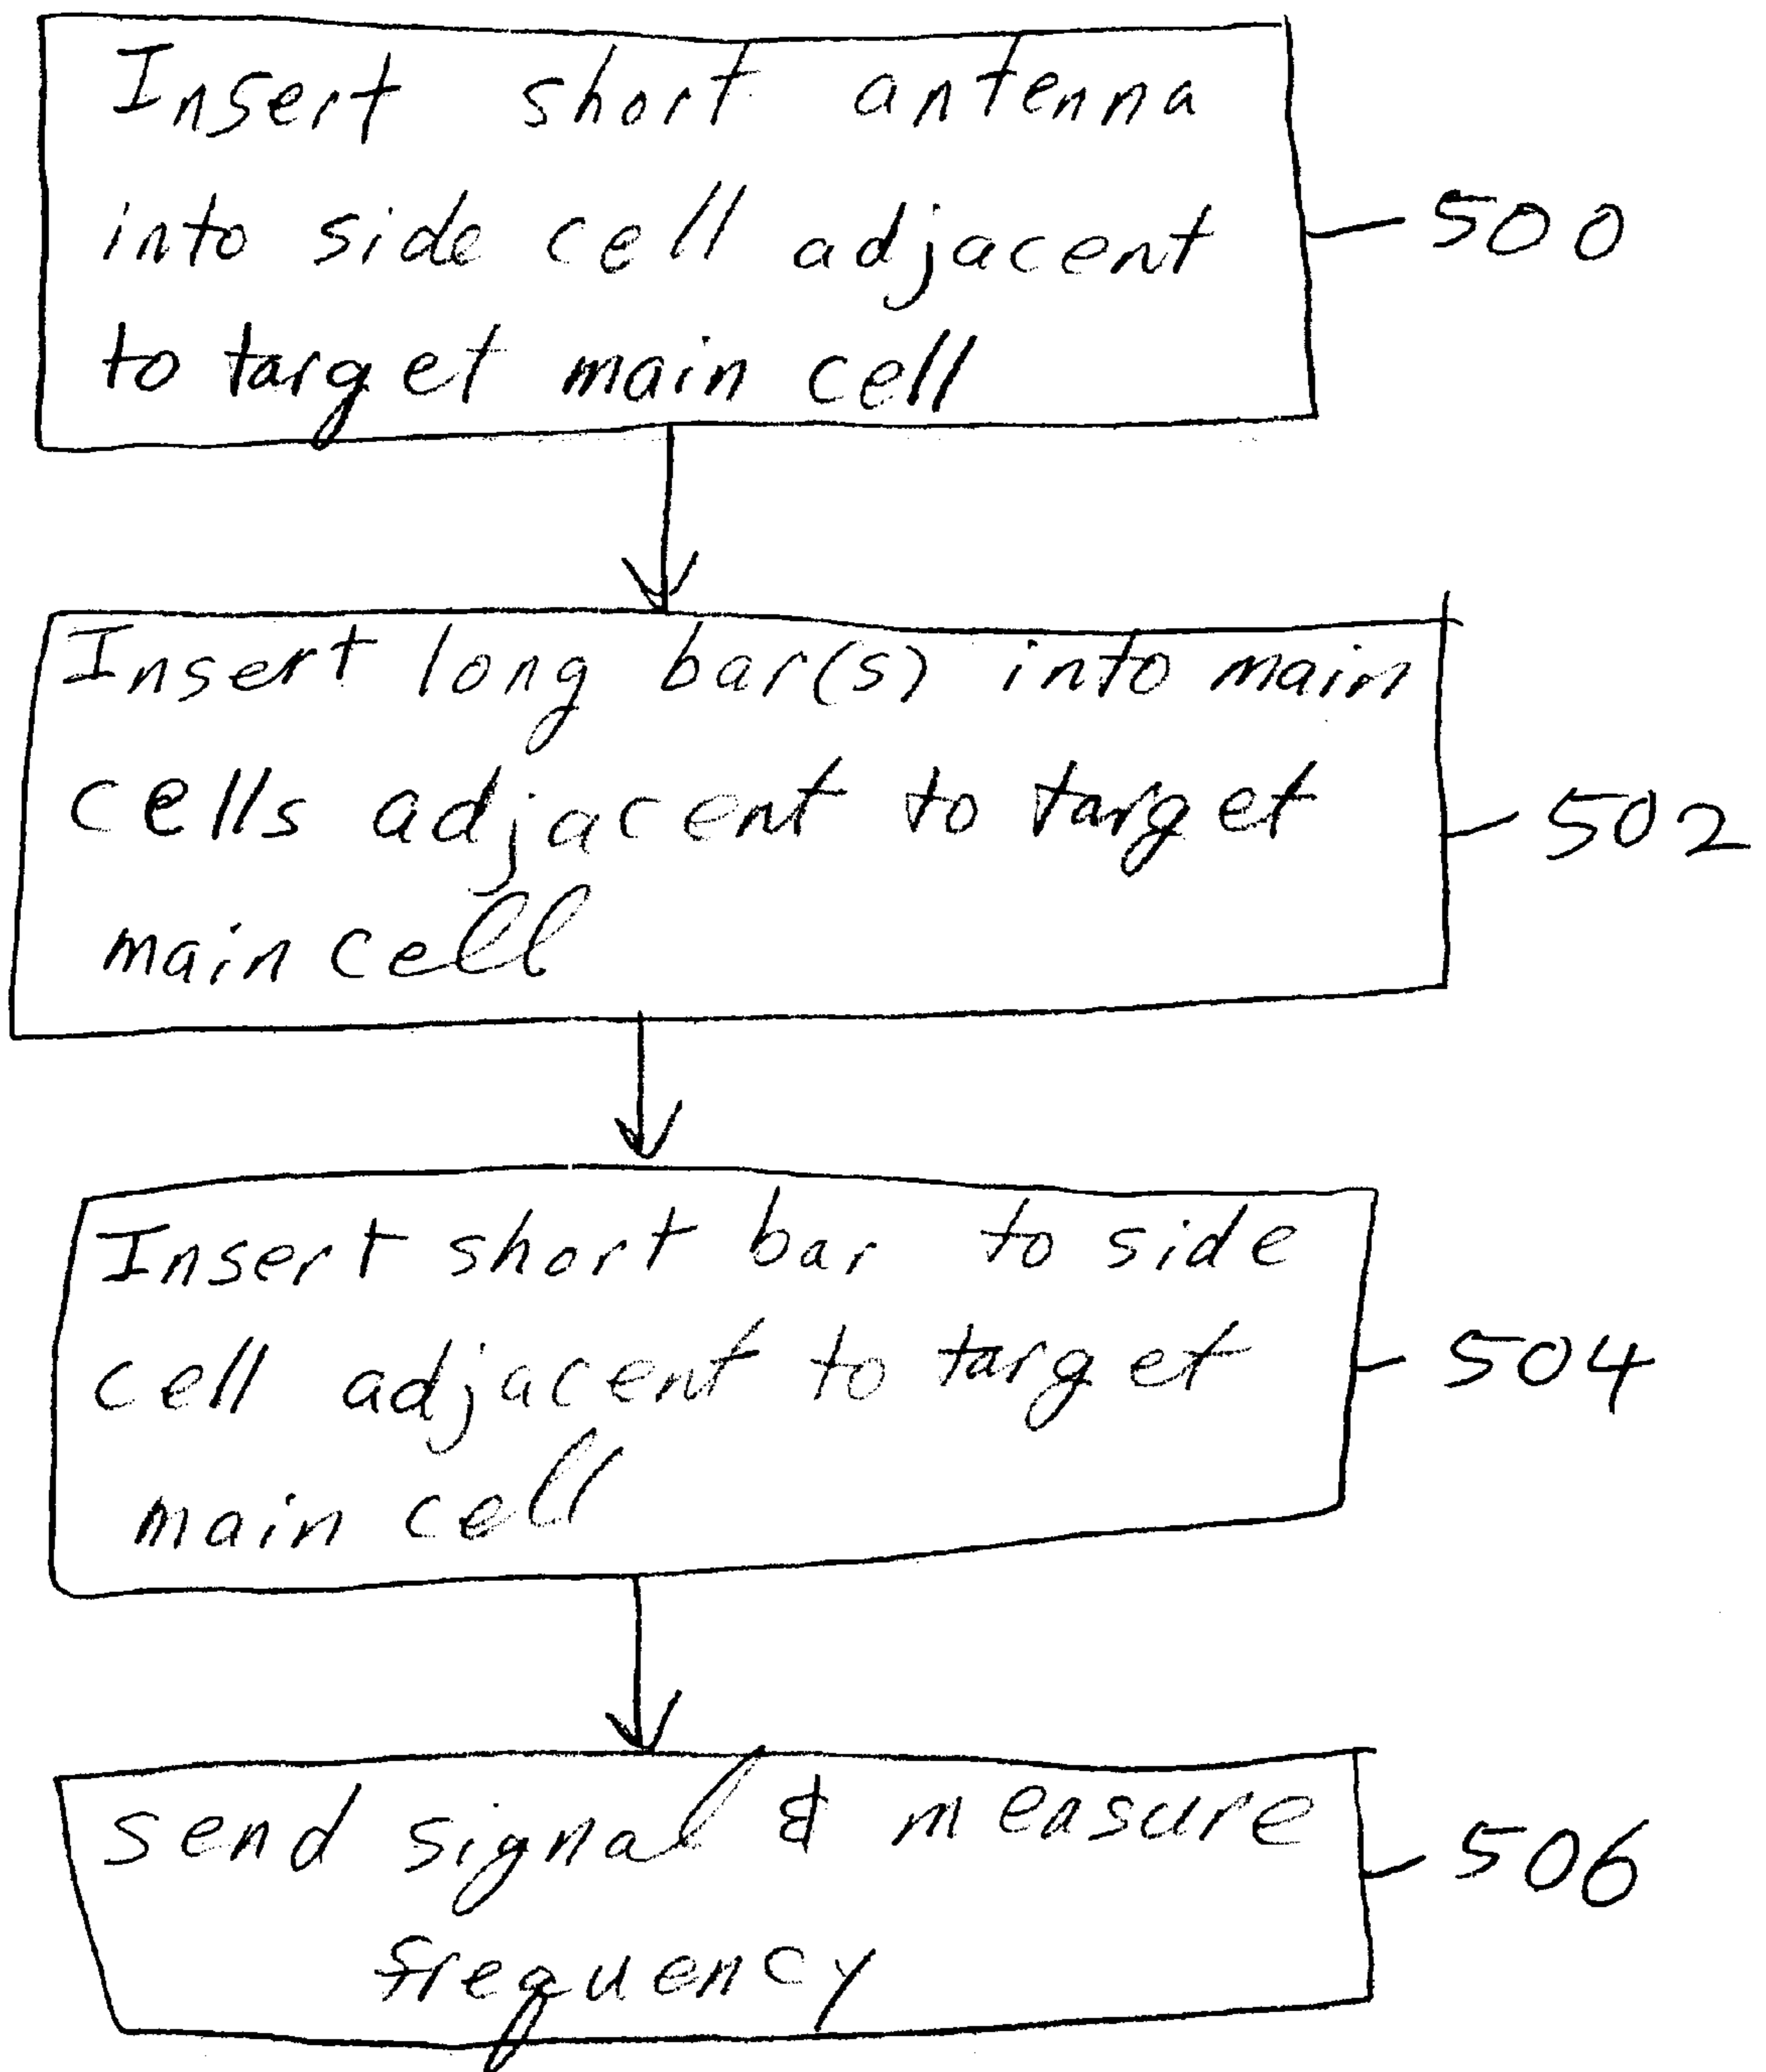 Insert short antenna
into side cell adjacent
to target main cell
500
Insert long bar(s) into main
cells adjacent to target
main cell
502
Insert short bar to side
cell adjacent to target
main cell
504
Send signal & measure
frequency
506